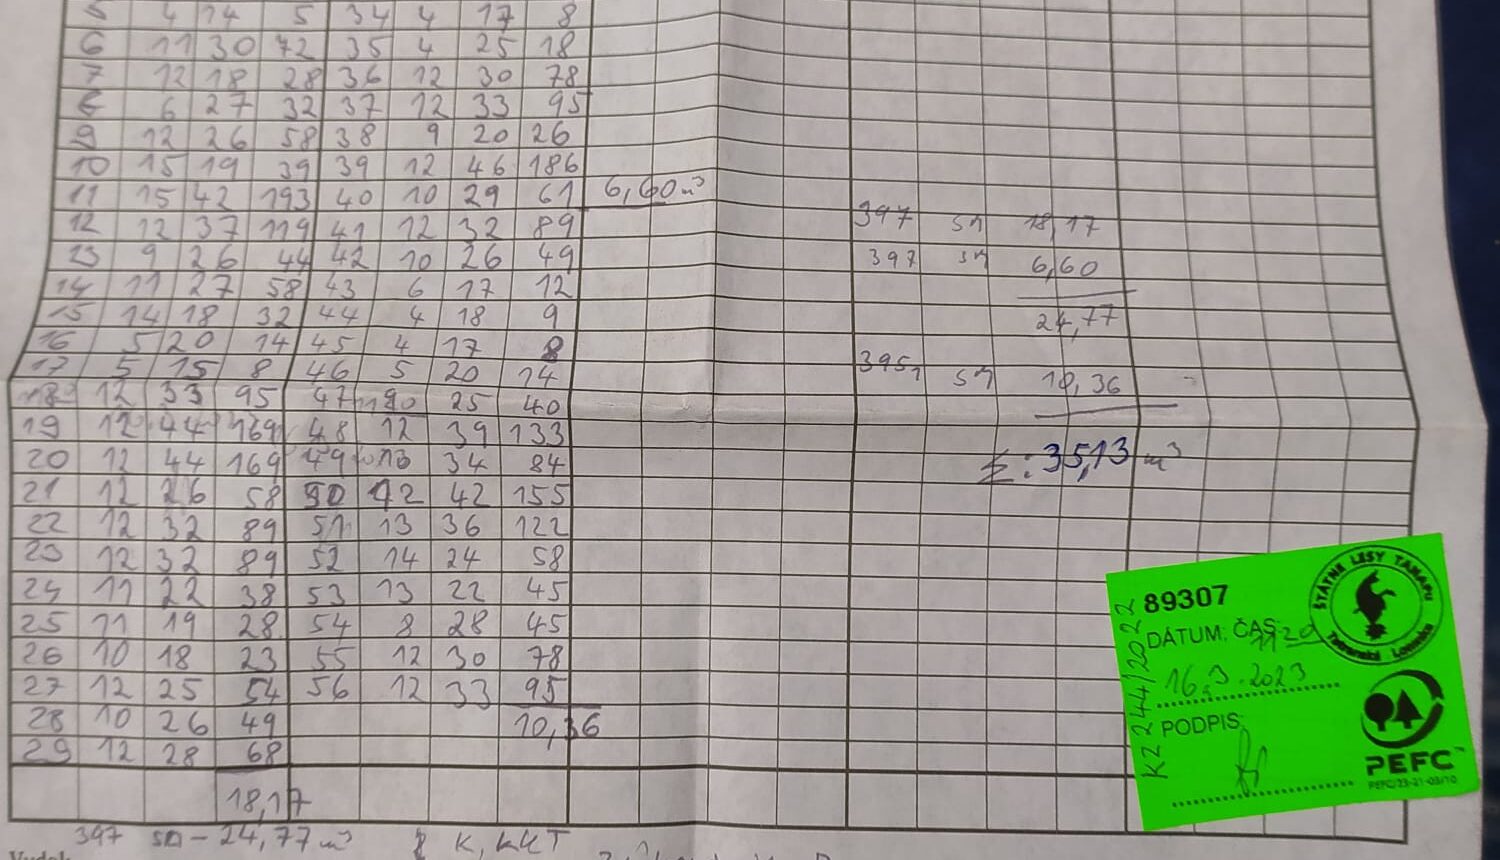 5 4 14 5 34 4 17 8
6 11 30 72 35 4 25 18
7 12 18 28 36 12 30 78
8 6 27 32 37 12 33 95
9 12 26 58 38 9 20 26
10 15 19 39 39 12 46 186
11 15 42 193 40 10 29 61 6,60 m³
12 12 37 119 41 12 32 89 397 sm 18,17
13 9 26 44 42 10 26 49 397 sm 6,60
14 11 27 58 43 6 17 12
15 14 18 32 44 4 18 9 24,77
16 5 20 14 45 4 17 8
17 5 15 8 46 5 20 14 395 sm 10,36
18 12 33 95 47 25 40
19 12 44 169 48 12 39 133
20 12 44 169 49 13 34 84 Σ: 35,13 m³
21 12 26 58 50 12 42 155
22 12 32 89 51 13 36 122
23 12 32 89 52 14 24 58
24 11 22 38 53 13 22 45
25 11 19 28 54 8 28 45
26 10 18 23 55 12 30 78
27 12 25 54 56 12 33 95
28 10 26 49 10,36
29 12 28 68
18,17
397 sm - 24,77 m³
ŠTÁTNE LESY TANAPU
Tatranská Lomnica
89307
DÁTUM: ČAS:
16.3.2023
PODPIS:
KZ 244/2022
PEFC™
PEFC/23-21-03/10